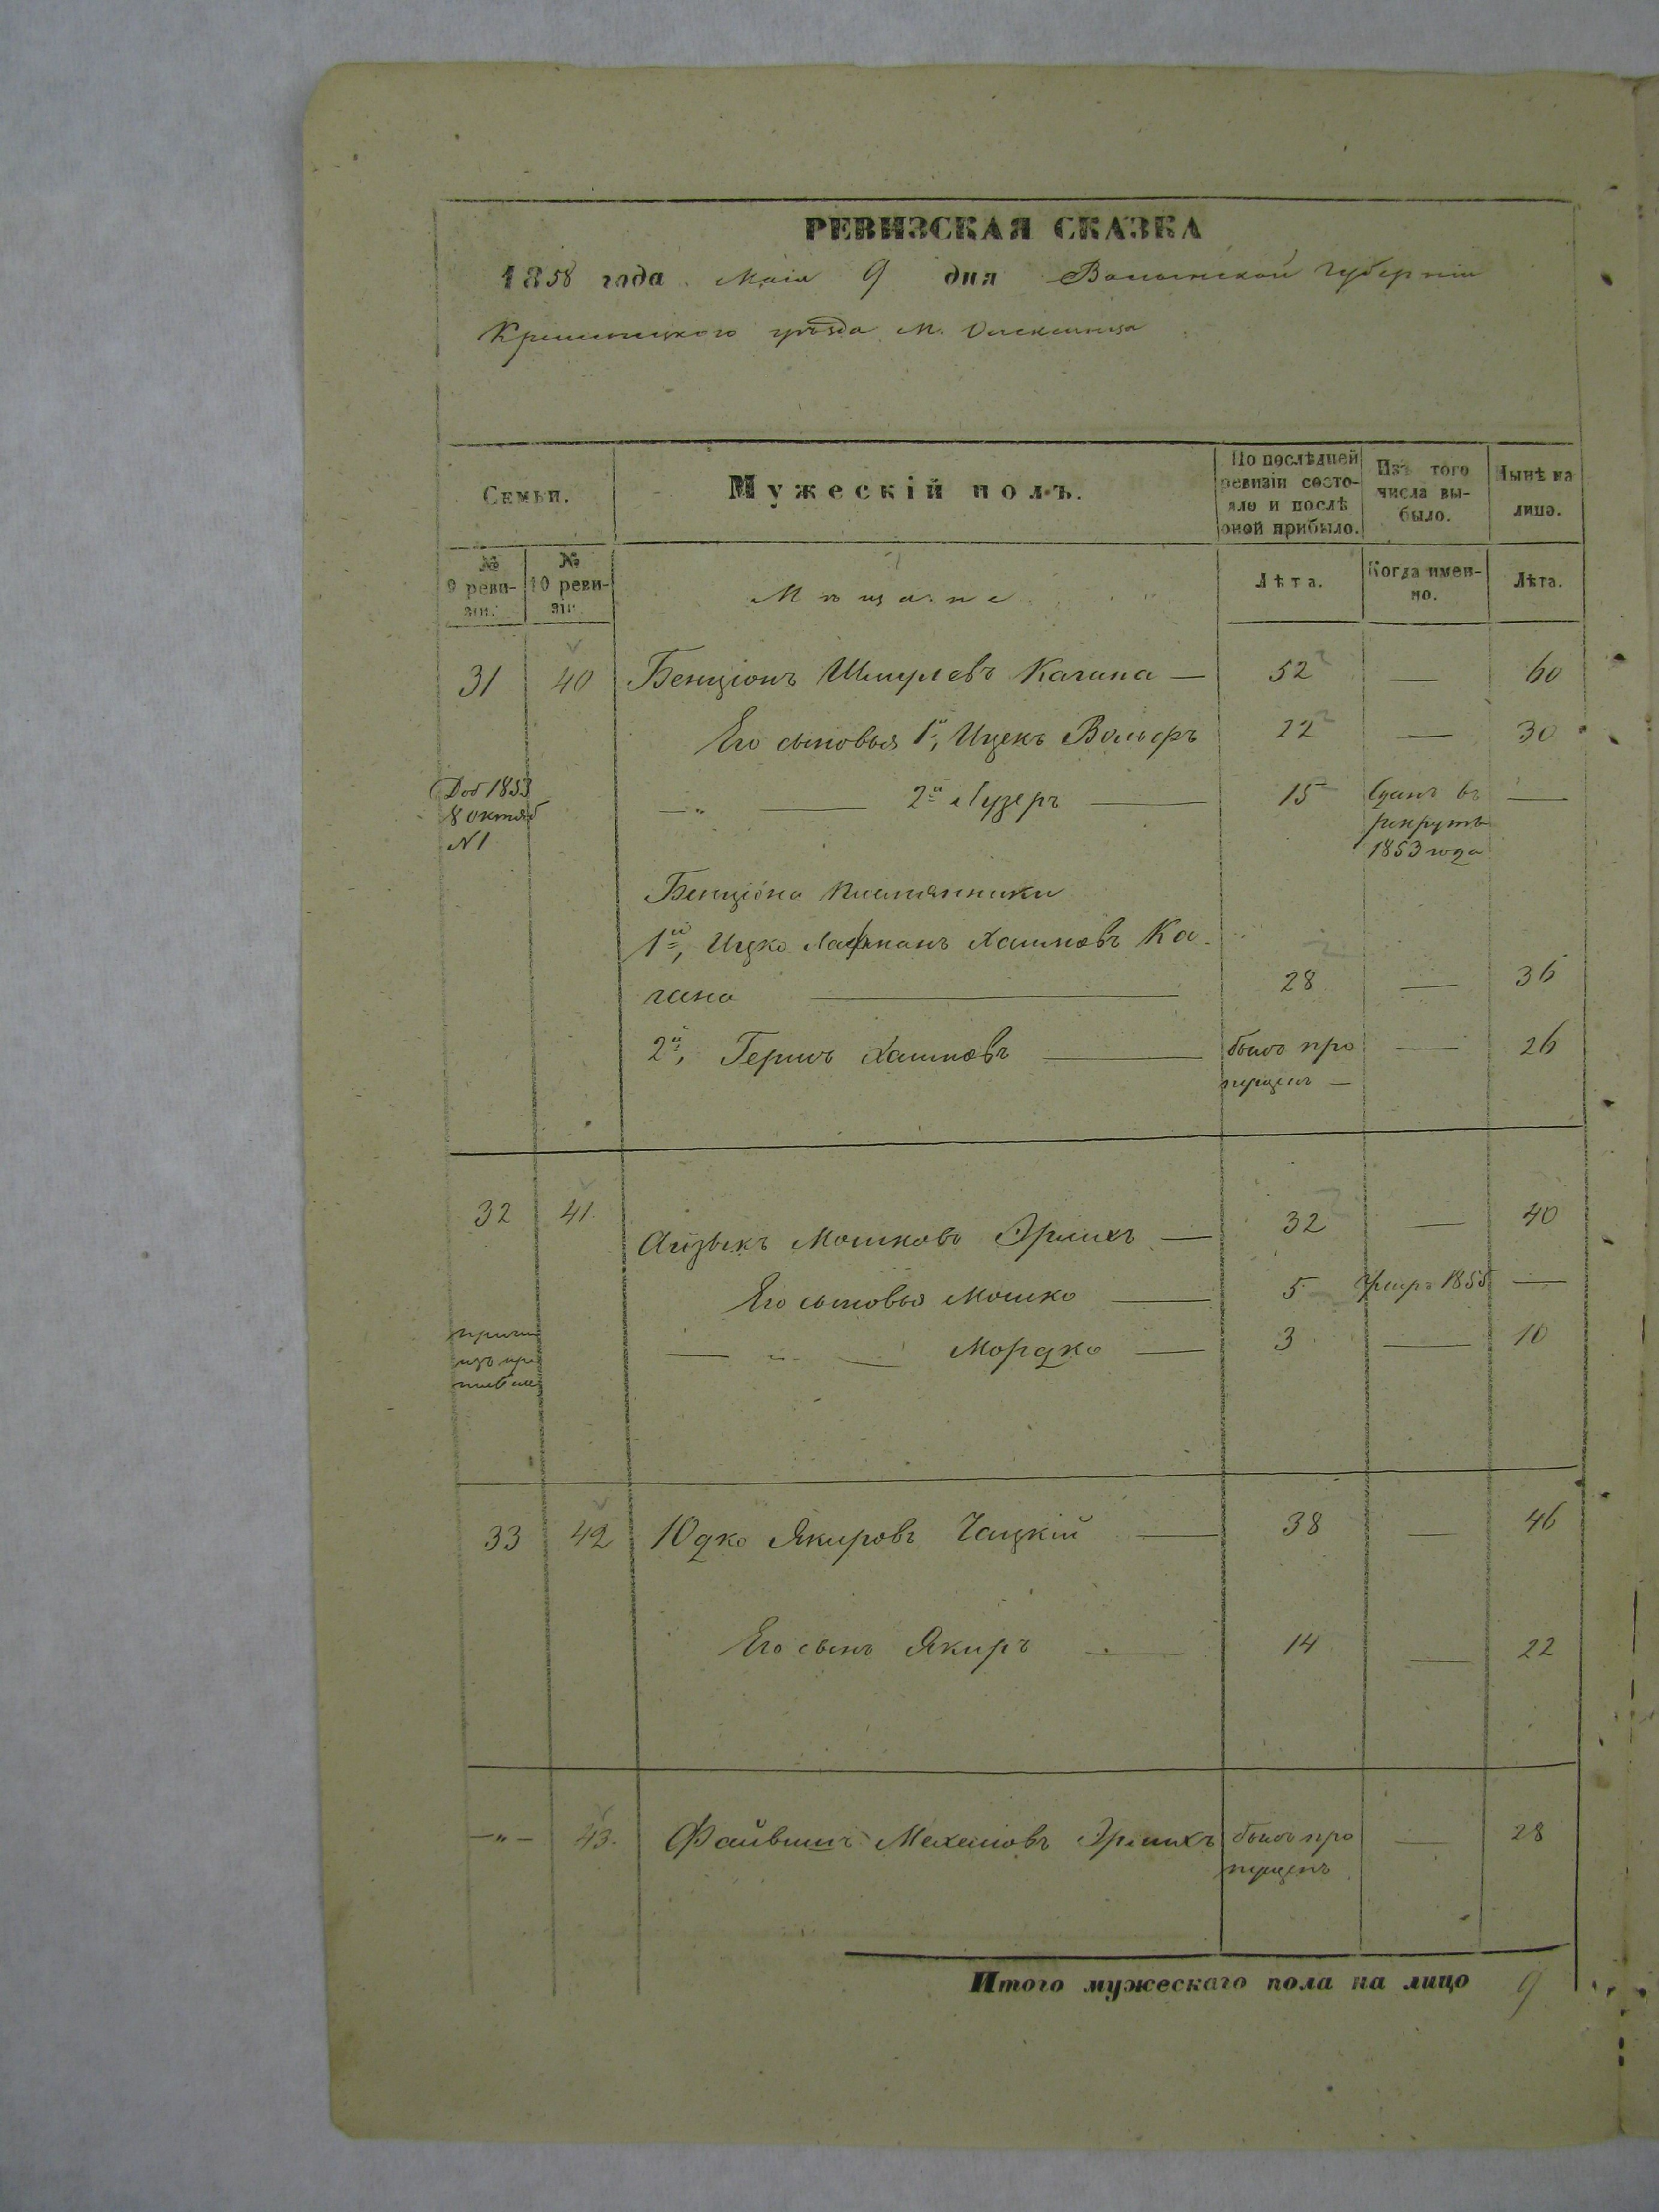 РЕВИЗСКАЯ СКАЗКА
1858 года Маія 9 дня Волынской губерніи
Кременецкого уѣзда М. Олексинца
Семьи.
Мужескій полъ.
По послѣдней ревизіи состояло и послѣ оной прибыло.
Изъ того числа выбыло.
Нынѣ на лицо.
№ 9 ревизіи.
№ 10 ревизіи.
Мѣщане
Лѣта.
Когда именно.
Лѣта.
31 40 Бенціонъ Шмулевъ Кагана — 52 — 60
Его сыновья 1й, Ицекъ Вольфъ 22 — 30
Доб 1853
8 октяб
№1
—„— 2й Лузеръ — 15 Сданъ въ —
рекруты
1853 года
Бенціона племянники
1й, Ицко Хаимовъ Ка-
гана — 28 — 36
2й, Гершъ Хаимовъ — былъ про — 26
пущенъ —
32 41. Айзыкъ Мошковъ Эрлихъ — 32 — 40
Его сыновья Мошко — 5 Умеръ 1855 —
— „ — Мордко — 3 — 10
33 42 Юдко Якировъ Чацкій — 38 — 46
Его сынъ Якиръ — 14 — 22
—„— 43. Файвишъ Мехелювъ Эрлихъ былъ про — 28
пущенъ
Итого мужескаго пола на лицо 9